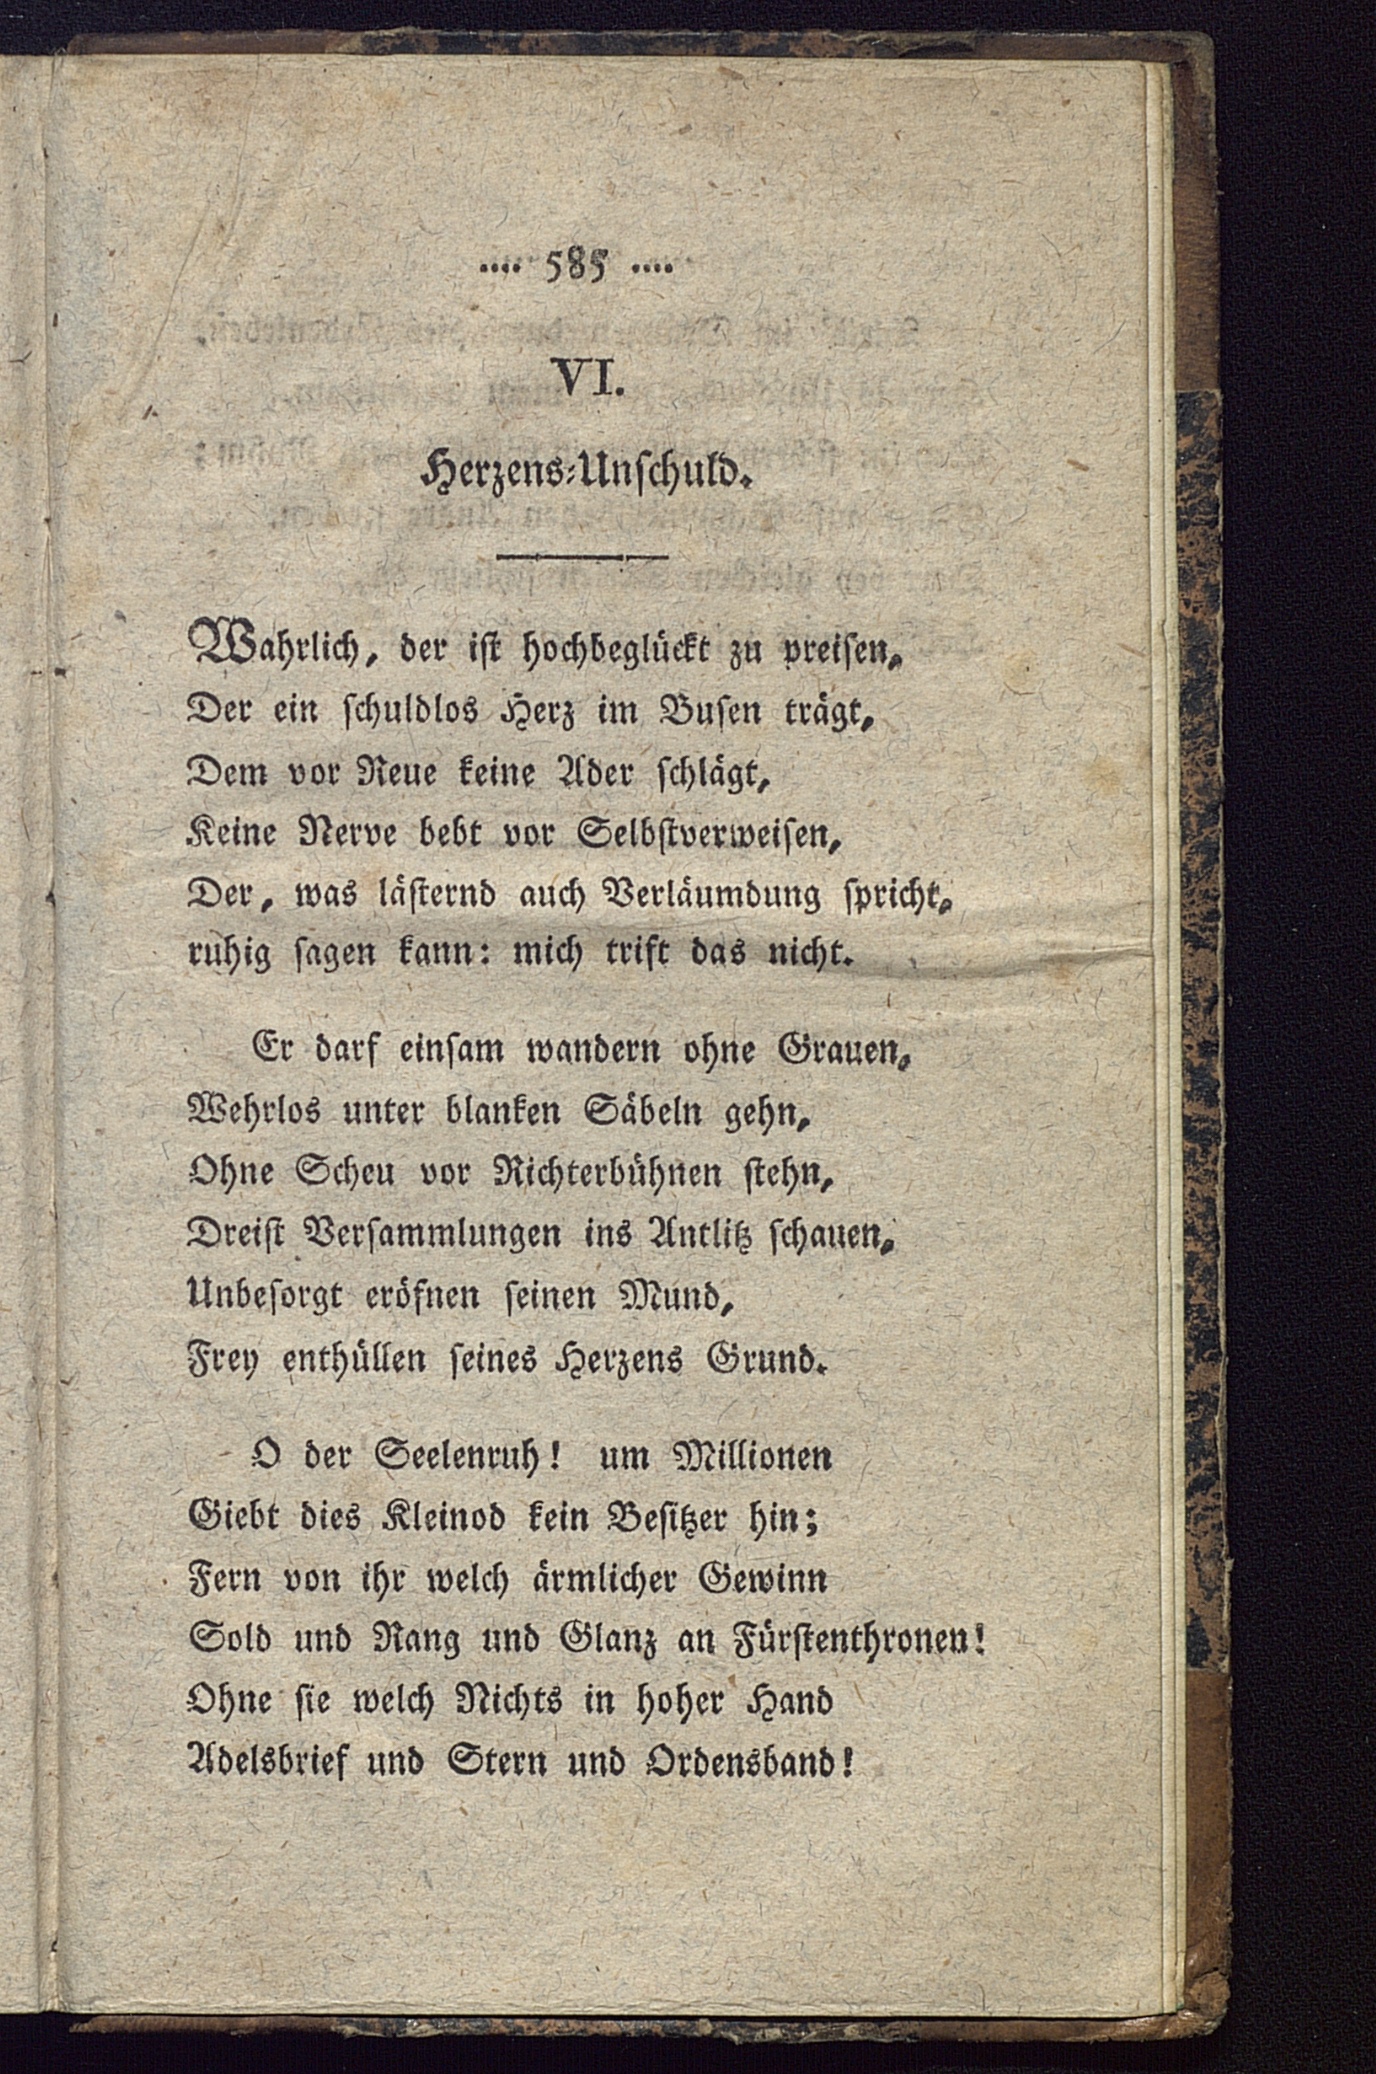 .... 585 ....
VI.
Herzens-Unschuld.
Wahrlich, der ist hochbeglückt zu preisen,
Der ein schuldlos Herz im Busen trägt,
Dem vor Reue keine Ader schlägt,
Keine Nerve bebt vor Selbstverweisen,
Der, was lästernd auch Verläumdung spricht,
ruhig sagen kann: mich trift das nicht.
Er darf einsam wandern ohne Grauen,
Wehrlos unter blanken Säbeln gehn,
Ohne Scheu vor Richterbühnen stehn,
Dreist Versammlungen ins Antlitz schauen,
Unbesorgt eröfnen seinen Mund,
Frey enthüllen seines Herzens Grund.
O der Seelenruh! um Millionen
Giebt dies Kleinod kein Besitzer hin;
Fern von ihr welch ärmlicher Gewinn
Sold und Rang und Glanz an Fürstenthronen!
Ohne sie welch Nichts in hoher Hand
Adelsbrief und Stern und Ordensband!